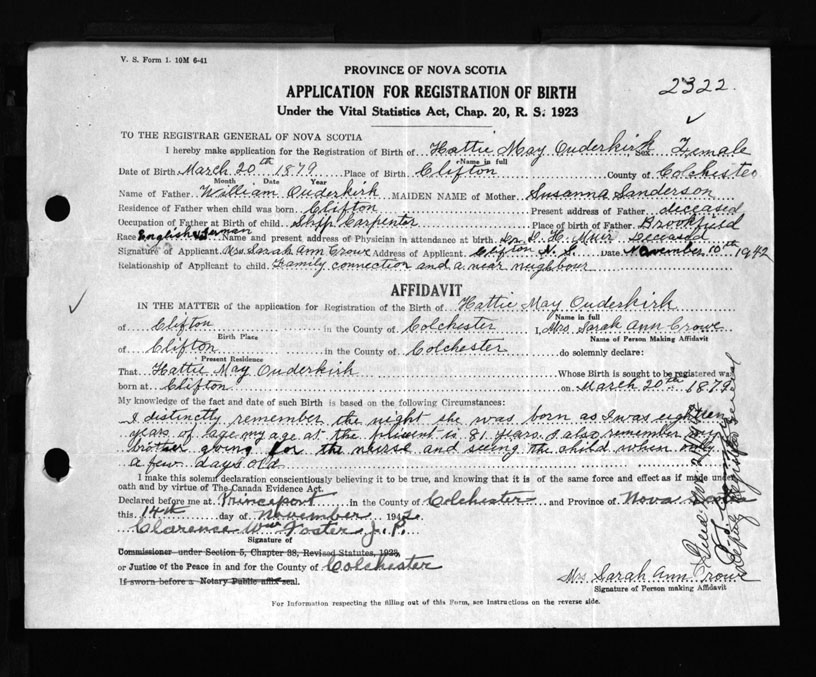 V. S. Form 1. 10M 6-41
PROVINCE OF NOVA SCOTIA
APPLICATION FOR REGISTRATION OF BIRTH
2322.
Under the Vital Statistics Act, Chap. 20, R. S. 1923
TO THE REGISTRAR GENERAL OF NOVA SCOTIA
I hereby make application for the Registration of Birth of Hattie May Ouderkirk, Sex Female
Name in full
Date of Birth March 20th 1879 Place of Birth Clifton County of Colchester
Month Date Year
Name of Father William Ouderkirk MAIDEN NAME of Mother Susanna Sanderson
Residence of Father when child was born Clifton Present address of Father deceased
Occupation of Father at Birth of child Ship Carpenter Place of birth of Father Brookfield
Race English & German Name and present address of Physician in attendance at birth Dr D. H. Muir Deceased
Signature of Applicant Mrs. Sarah Ann Crowe Address of Applicant Clifton N. S. Date November 10th 1942
Relationship of Applicant to child Family connection and a near neighbour
AFFIDAVIT
IN THE MATTER of the application for Registration of the Birth of Hattie May Ouderkirk
Name in full
of Clifton in the County of Colchester I, Mrs. Sarah Ann Crowe
Birth Place Name of Person Making Affidavit
of Clifton in the County of Colchester do solemnly declare:
Present Residence
That Hattie May Ouderkirk Whose Birth is sought to be registered was
born at Clifton on March 20th 1879
My knowledge of the fact and date of such Birth is based on the following Circumstances:
I distinctly remember the night she was born as I was eighteen
years of age my age at the present is 81 years. I also remember my
brother going for the nurse and seeing the child when only
a few days old
I make this solemn declaration conscientiously believing it to be true, and knowing that it is of the same force and effect as if made under
oath and by virtue of The Canada Evidence Act.
Declared before me at Princeport in the County of Colchester and Province of Nova
this 14th day of November 1942
Clarence Wm Foster J. P.
Signature of
Commissioner under Section 5, Chapter 38, Revised Statutes, 1923,
or Justice of the Peace in and for the County of Colchester
If sworn before a Notary Public affix seal.
Mrs Sarah Ann Crowe
Signature of Person making Affidavit
For Information respecting the filling out of this Form, see Instructions on the reverse side.
Deputy Registrar General